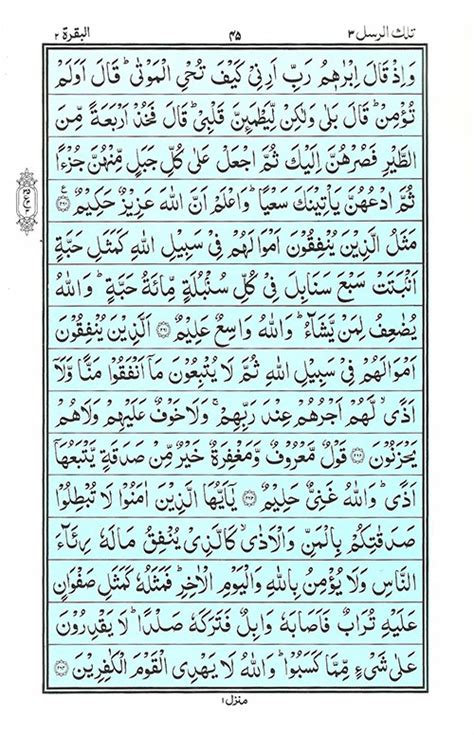 تلك الرسل ٣ ۴۵ البقرة ٢
وَاِذْ قَالَ اِبْرٰهٖمُ رَبِّ اَرِنِيْ كَيْفَ تُحْيِ الْمَوْتٰىؕ قَالَ اَوَلَمْ
تُؤْمِنْؕ قَالَ بَلٰى وَلٰكِنْ لِّيَطْمَئِنَّ قَلْبِيْؕ قَالَ فَخُذْ اَرْبَعَةً مِّنَ
الطَّيْرِ فَصُرْهُنَّ اِلَيْكَ ثُمَّ اجْعَلْ عَلٰى كُلِّ جَبَلٍ مِّنْهُنَّ جُزْءًا
ثُمَّ ادْعُهُنَّ يَاْتِيْنَكَ سَعْيًاؕ وَاعْلَمْ اَنَّ اللّٰهَ عَزِيْزٌ حَكِيْمٌ ﴿۲۶۰﴾
مَثَلُ الَّذِيْنَ يُنْفِقُوْنَ اَمْوَالَهُمْ فِيْ سَبِيْلِ اللّٰهِ كَمَثَلِ حَبَّةٍ
اَنْۢبَتَتْ سَبْعَ سَنَابِلَ فِيْ كُلِّ سُنْۢبُلَةٍ مِّائَةُ حَبَّةٍؕ وَاللّٰهُ
يُضٰعِفُ لِمَنْ يَّشَآءُؕ وَاللّٰهُ وَاسِعٌ عَلِيْمٌ ﴿۲۶۱﴾ اَلَّذِيْنَ يُنْفِقُوْنَ
اَمْوَالَهُمْ فِيْ سَبِيْلِ اللّٰهِ ثُمَّ لَا يُتْبِعُوْنَ مَاۤ اَنْفَقُوْا مَنًّا وَّلَاۤ
اَذًىۙ لَّهُمْ اَجْرُهُمْ عِنْدَ رَبِّهِمْۚ وَلَا خَوْفٌ عَلَيْهِمْ وَلَا هُمْ
يَحْزَنُوْنَ ﴿۲۶۲﴾ قَوْلٌ مَّعْرُوْفٌ وَّمَغْفِرَةٌ خَيْرٌ مِّنْ صَدَقَةٍ يَّتْبَعُهَاۤ
اَذًىؕ وَاللّٰهُ غَنِيٌّ حَلِيْمٌ ﴿۲۶۳﴾ يٰۤاَيُّهَا الَّذِيْنَ اٰمَنُوْا لَا تُبْطِلُوْا
صَدَقٰتِكُمْ بِالْمَنِّ وَالْاَذٰىۙ كَالَّذِيْ يُنْفِقُ مَالَهٗ رِئَآءَ
النَّاسِ وَلَا يُؤْمِنُ بِاللّٰهِ وَالْيَوْمِ الْاٰخِرِؕ فَمَثَلُهٗ كَمَثَلِ صَفْوَانٍ
عَلَيْهِ تُرَابٌ فَاَصَابَهٗ وَابِلٌ فَتَرَكَهٗ صَلْدًاؕ لَا يَقْدِرُوْنَ
عَلٰى شَيْءٍ مِّمَّا كَسَبُوْاؕ وَاللّٰهُ لَا يَهْدِى الْقَوْمَ الْكٰفِرِيْنَ ﴿۲۶۴﴾
منزل ١